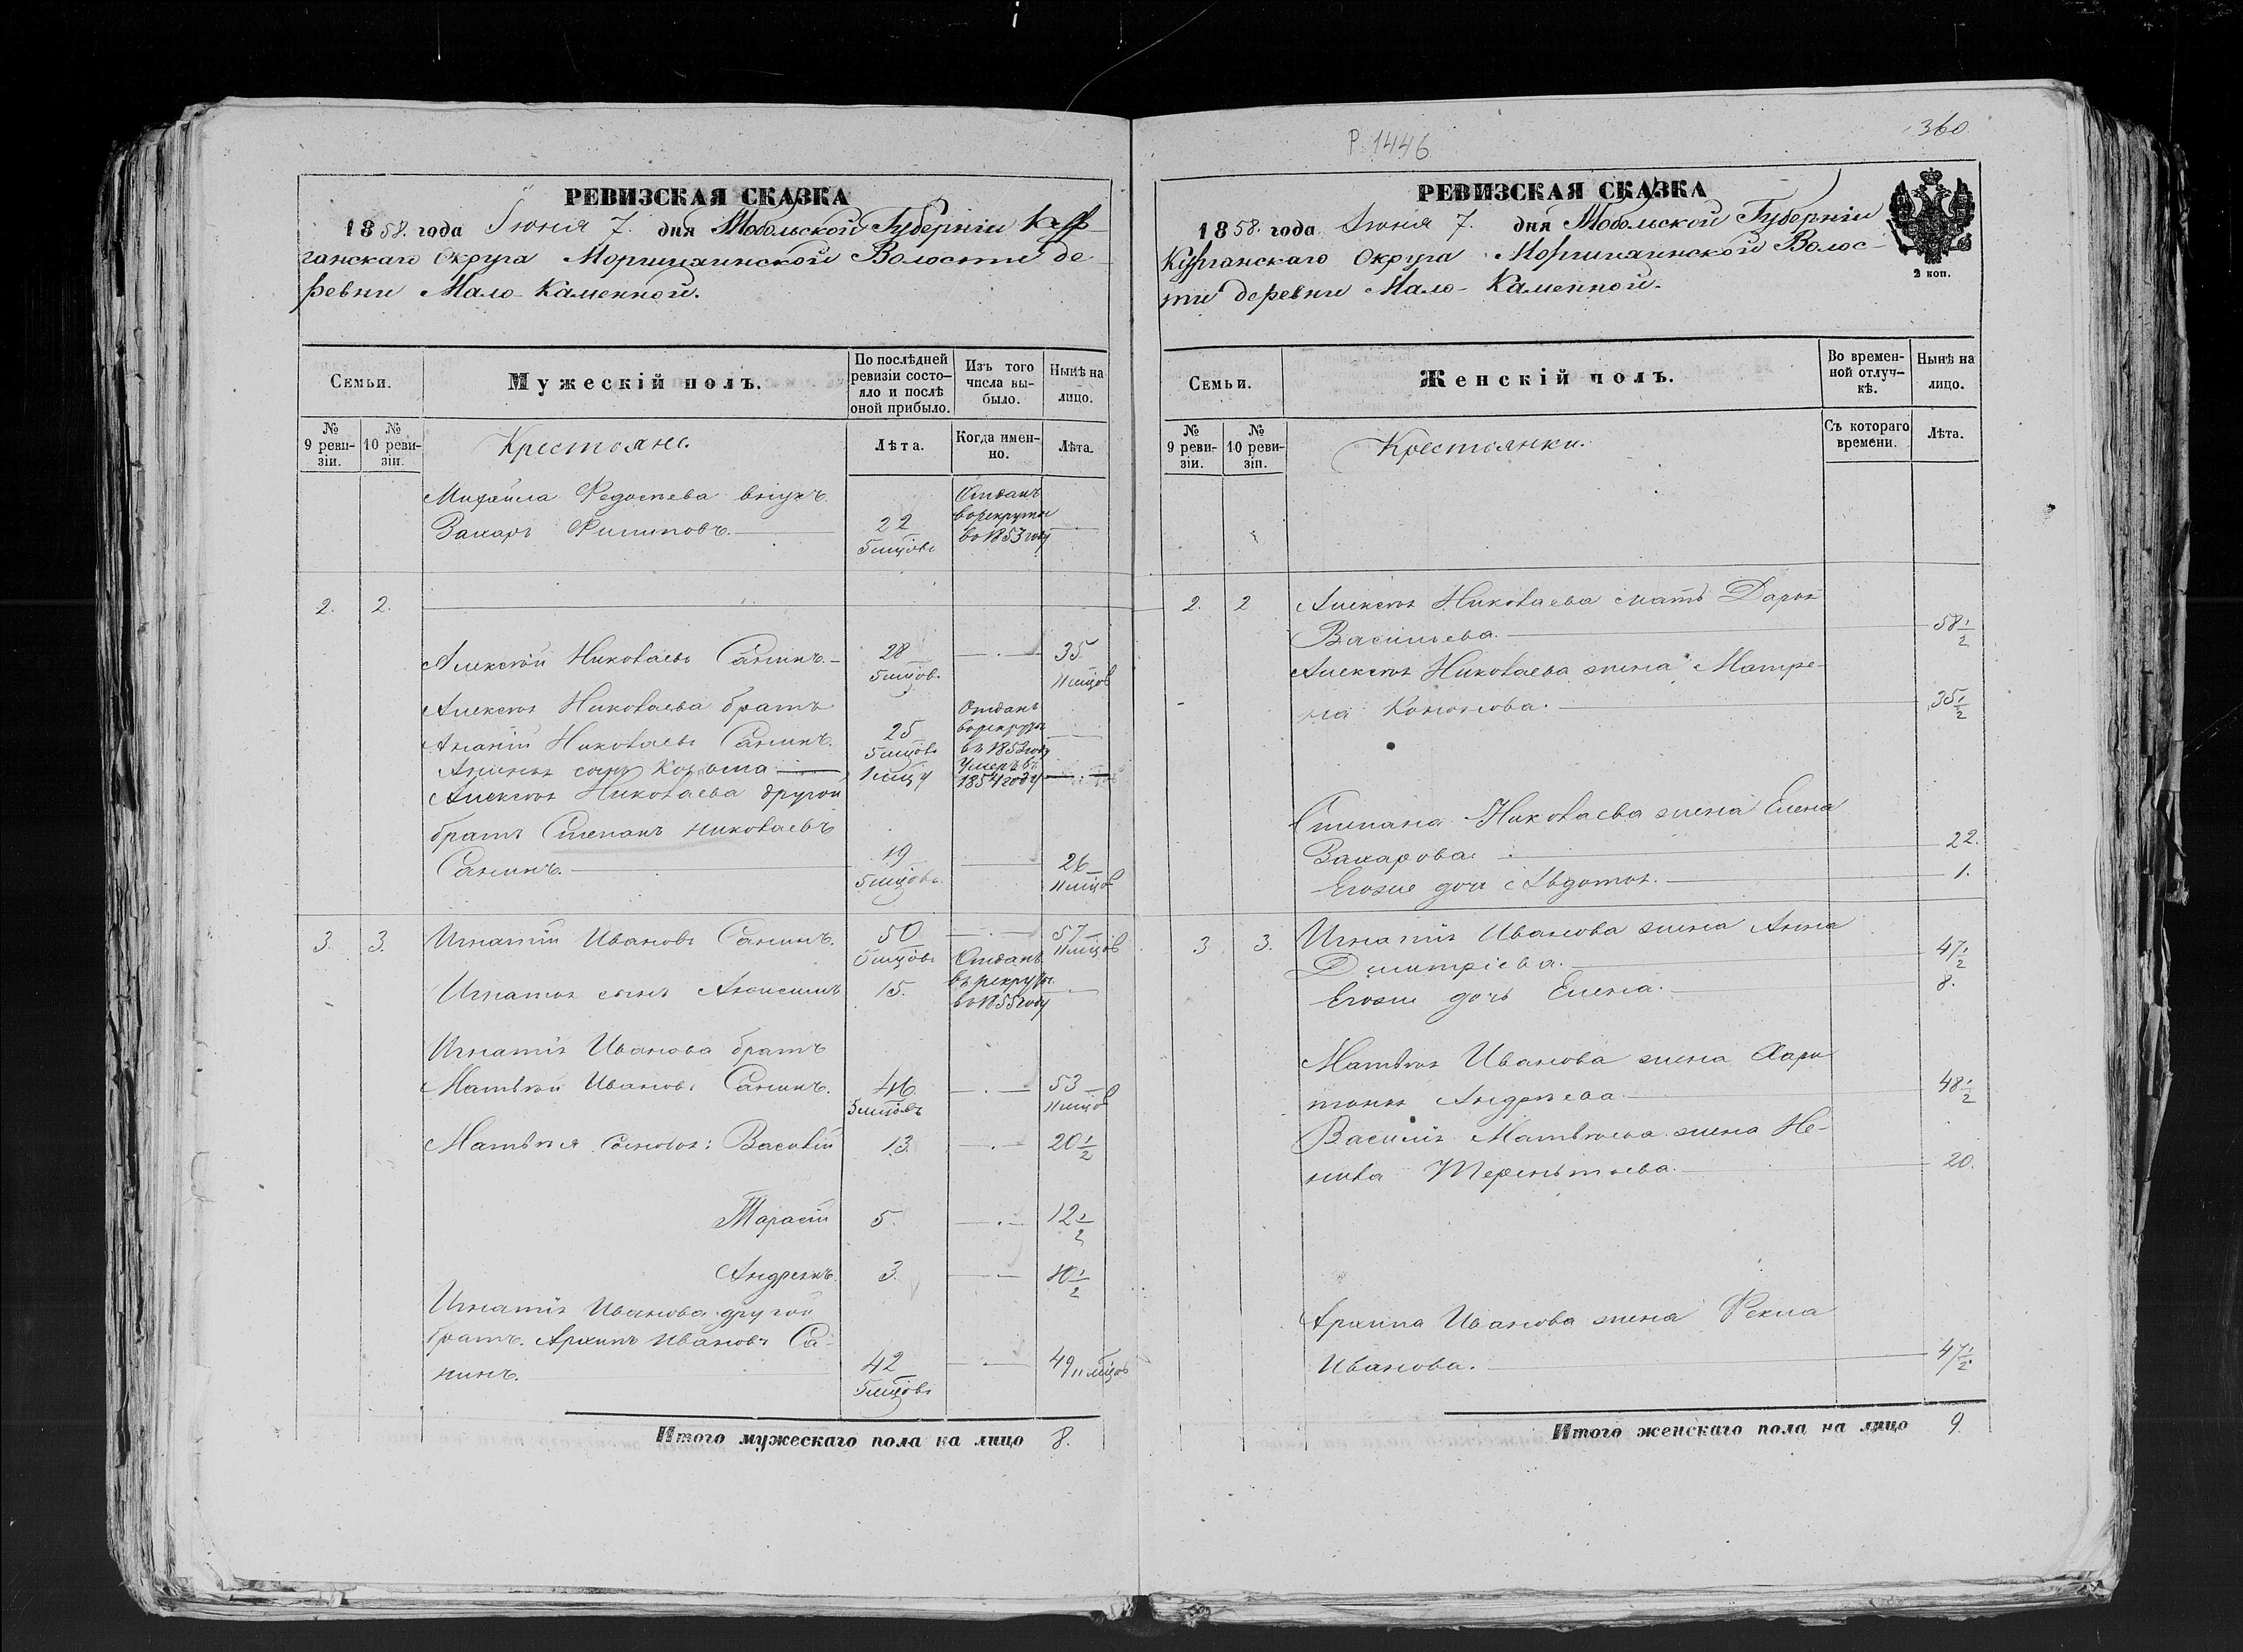 РЕВИЗСКАЯ СКАЗКА
1858. года Iюня 7. дня Тобольской Губернiи Кур-
ганскаго Округа Моршихинской Волости де-
ревни Мало-Каменной.
Семьи.
Мужескiй полъ.
По послѣдней ревизiи состо-яло и послѣ оной прибыло.
Изъ того числа вы-было.
Нынѣ на лицо.
№ 9 реви-зiи.
№ 10 реви-зiи.
Крестьяне.
Лѣта.
Когда имен-но.
Лѣта.
Михайла Федосѣева внукъ
Захаръ Филиповъ. 22 5 мцовъ
Отданъ
в рекруты
во 1853 году
2. 2.
Алексѣй Николаевъ Санинъ. 28 5 мцовъ 35 11 мцов
Алексѣя Николаева братъ
Ананiй Николаевъ Санинъ. 25 5 мцовъ
Отданъ
в рекруты
въ 1853 году
Ананья сынъ Козьма 1 мцъ
Умеръ въ
1854 году
Алексѣя Николаева другой
братъ Степанъ Николаевъ
Санинъ. 19 5 мцовъ 26 11 мцов
3. 3. Игнатiй Ивановъ Санинъ. 50 5 мцовъ 57 11 мцов
Игнатья сынъ Анисимъ 15.
Отданъ
въ рекруты
во 1855 году
Игнатiя Иванова братъ
Матвѣй Ивановъ Санинъ. 46 5 мцовъ 53 11 мцов
Матвѣя сыновья: Василiй 13. 20 1/2
Тарасiй 5. 12 1/2
Андреянъ. 3. 10 1/2
Игнатiя Иванова другой
братъ. Архипъ Ивановъ Са-
нинъ. 42 5 мцовъ 49 11 мцов
Итого мужескаго пола на лицо 8.
Р. 1446
360
РЕВИЗСКАЯ СКАЗКА
1858. года Iюня 7. дня Тобольской Губернiи
Курганскаго Округа Моршихинской Волос-
ти деревни Мало-Каменной.
2 коп.
Семьи.
Женскiй полъ.
Во времен-ной отлуч-кѣ.
Нынѣ на лицо.
№ 9 реви-зiи.
№ 10 реви-зiи.
Крестьянки.
Съ котораго времени.
Лѣта.
2. 2 Алексѣя Николаева мать Дарья
Васильева. 58 1/2
Алексѣя Николаева жена Матре-
на Кононова. 35 1/2
Степана Николаева жена Елена
Захарова. 22.
Егоже дочь Авдотья. 1.
3 3. Игнатiя Иванова жена Анна
Димитрiева. 47 1/2
Егоже дочь Елена. 8.
Матвѣя Иванова жена Хари
тонья Андрѣева 48 1/2
Василiя Матвѣева жена Не-
нила Терентьева. 20.
Архипа Иванова жена Фекла
Иванова. 47 1/2.
Итого женскаго пола на лицо 9.